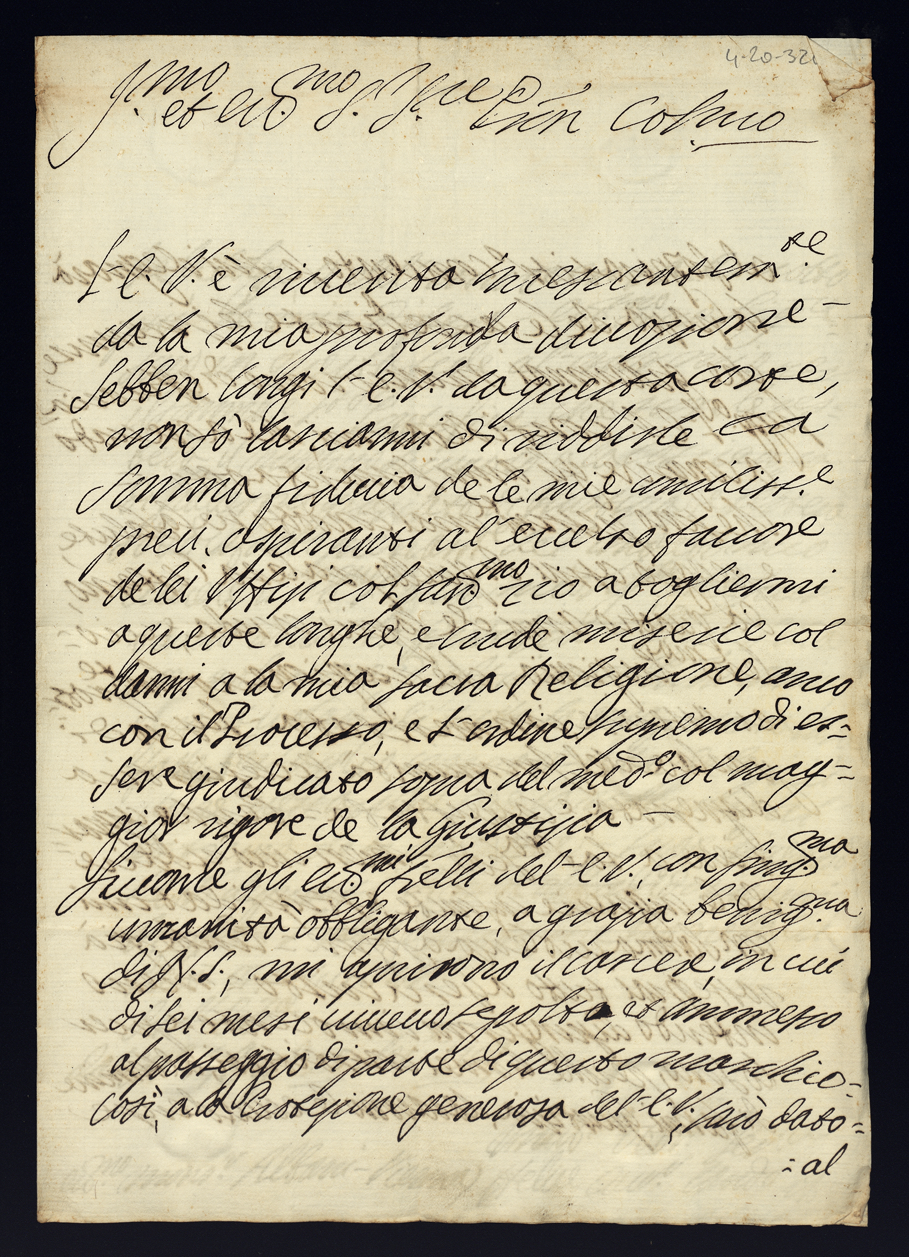 4-20-32
Ill.mo et Ecc.mo S. S.re P.ron Col.mo
L'E. V. è riuerita incessantem.te
da la mia profonda diuozione -
Sebben longi l'E. V. da questa corte,
non sò lasciarmi di ridirle la
somma fiducia de le mie umiliss.e
preci, aspiranti al' eccelso fauore
de lei Vffizi col San.mo zio a togliermi
a queste longhe, e crude miserie col
darmi a la mia sacra Religione, anco
con il Processo, e l'ordine supremo di es=
sere giudicato sopra del med.o col mag=
gior rigore de la Giustizia -
Siccome gli ecc.mi Frelli del' E. V., con sing.ma
umanità obbligante, a grazia benig.na
di N. S., mi aprirono il carcere, in cui
di sei mesi viueuo sepolto, et ammesso
al passeggio di parte di questo maschio -
così, a la Protezione generosa del' E. V., sarò dato=
=al